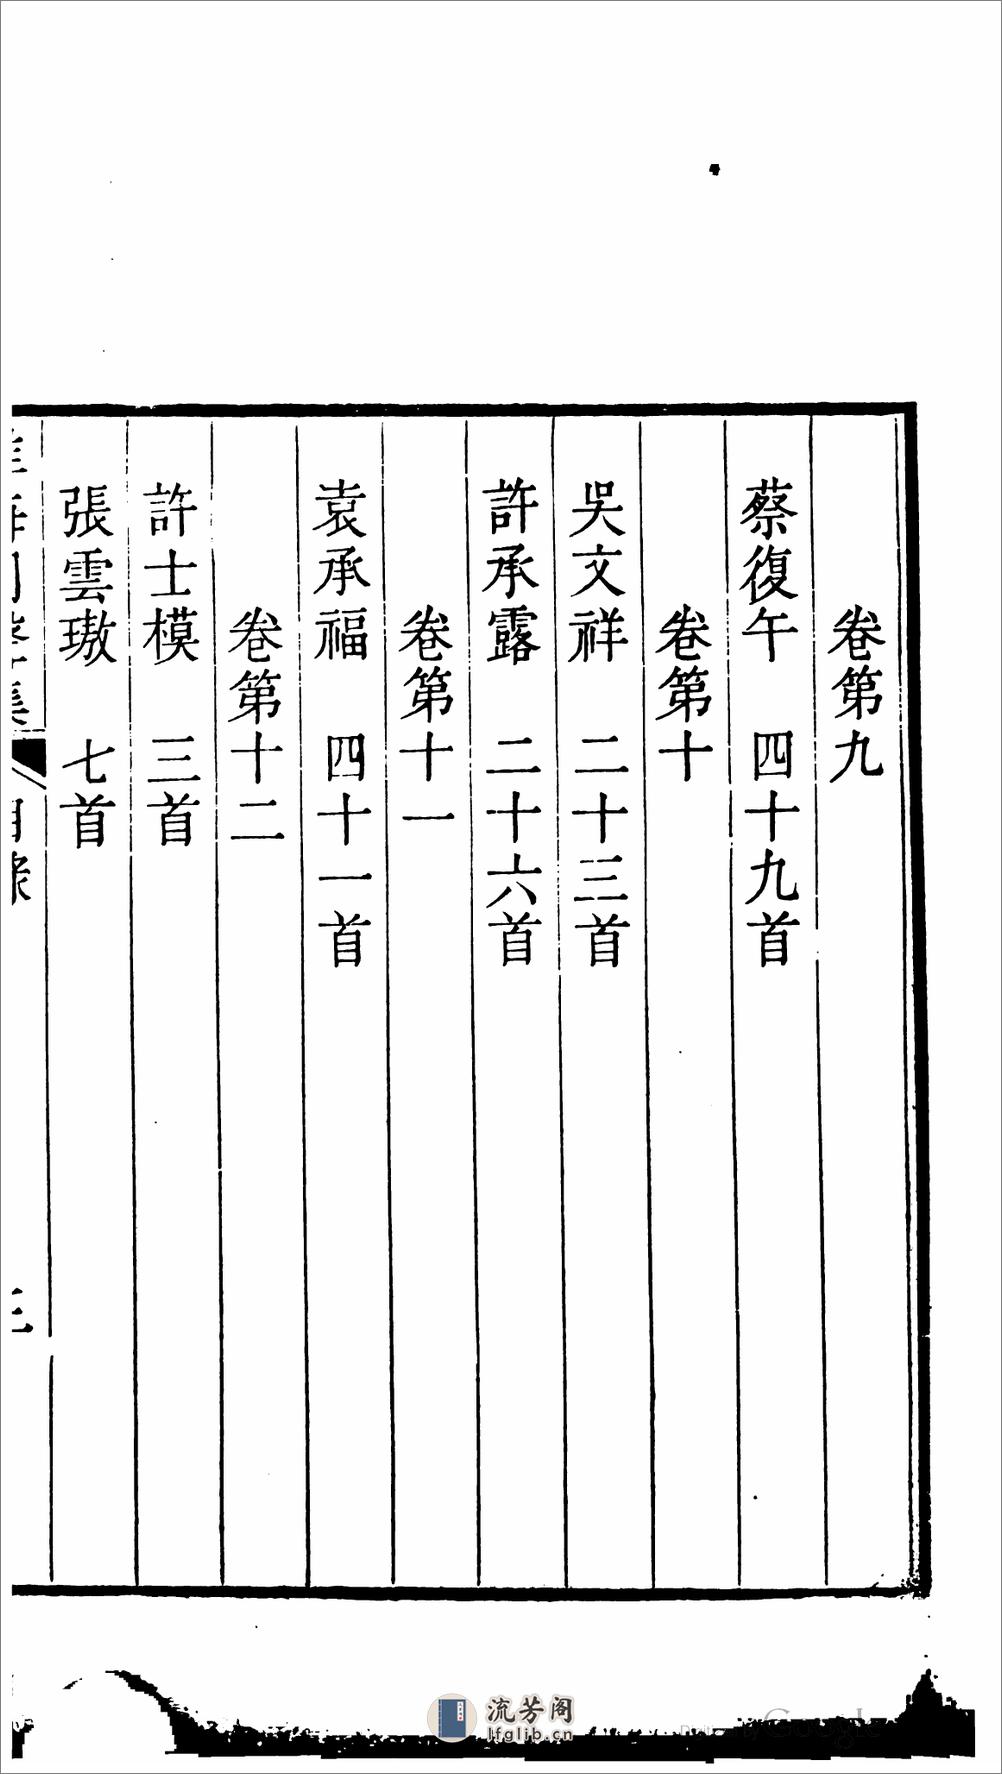 卷第九
蔡復午　四十九首
卷第十
吳文祥　二十三首
許承露　二十六首
卷第十一
袁承福　四十一首
卷第十二
許士模　三首
張雲璈　七首
集　目錄
流芳阁
lfglib.cn
Google